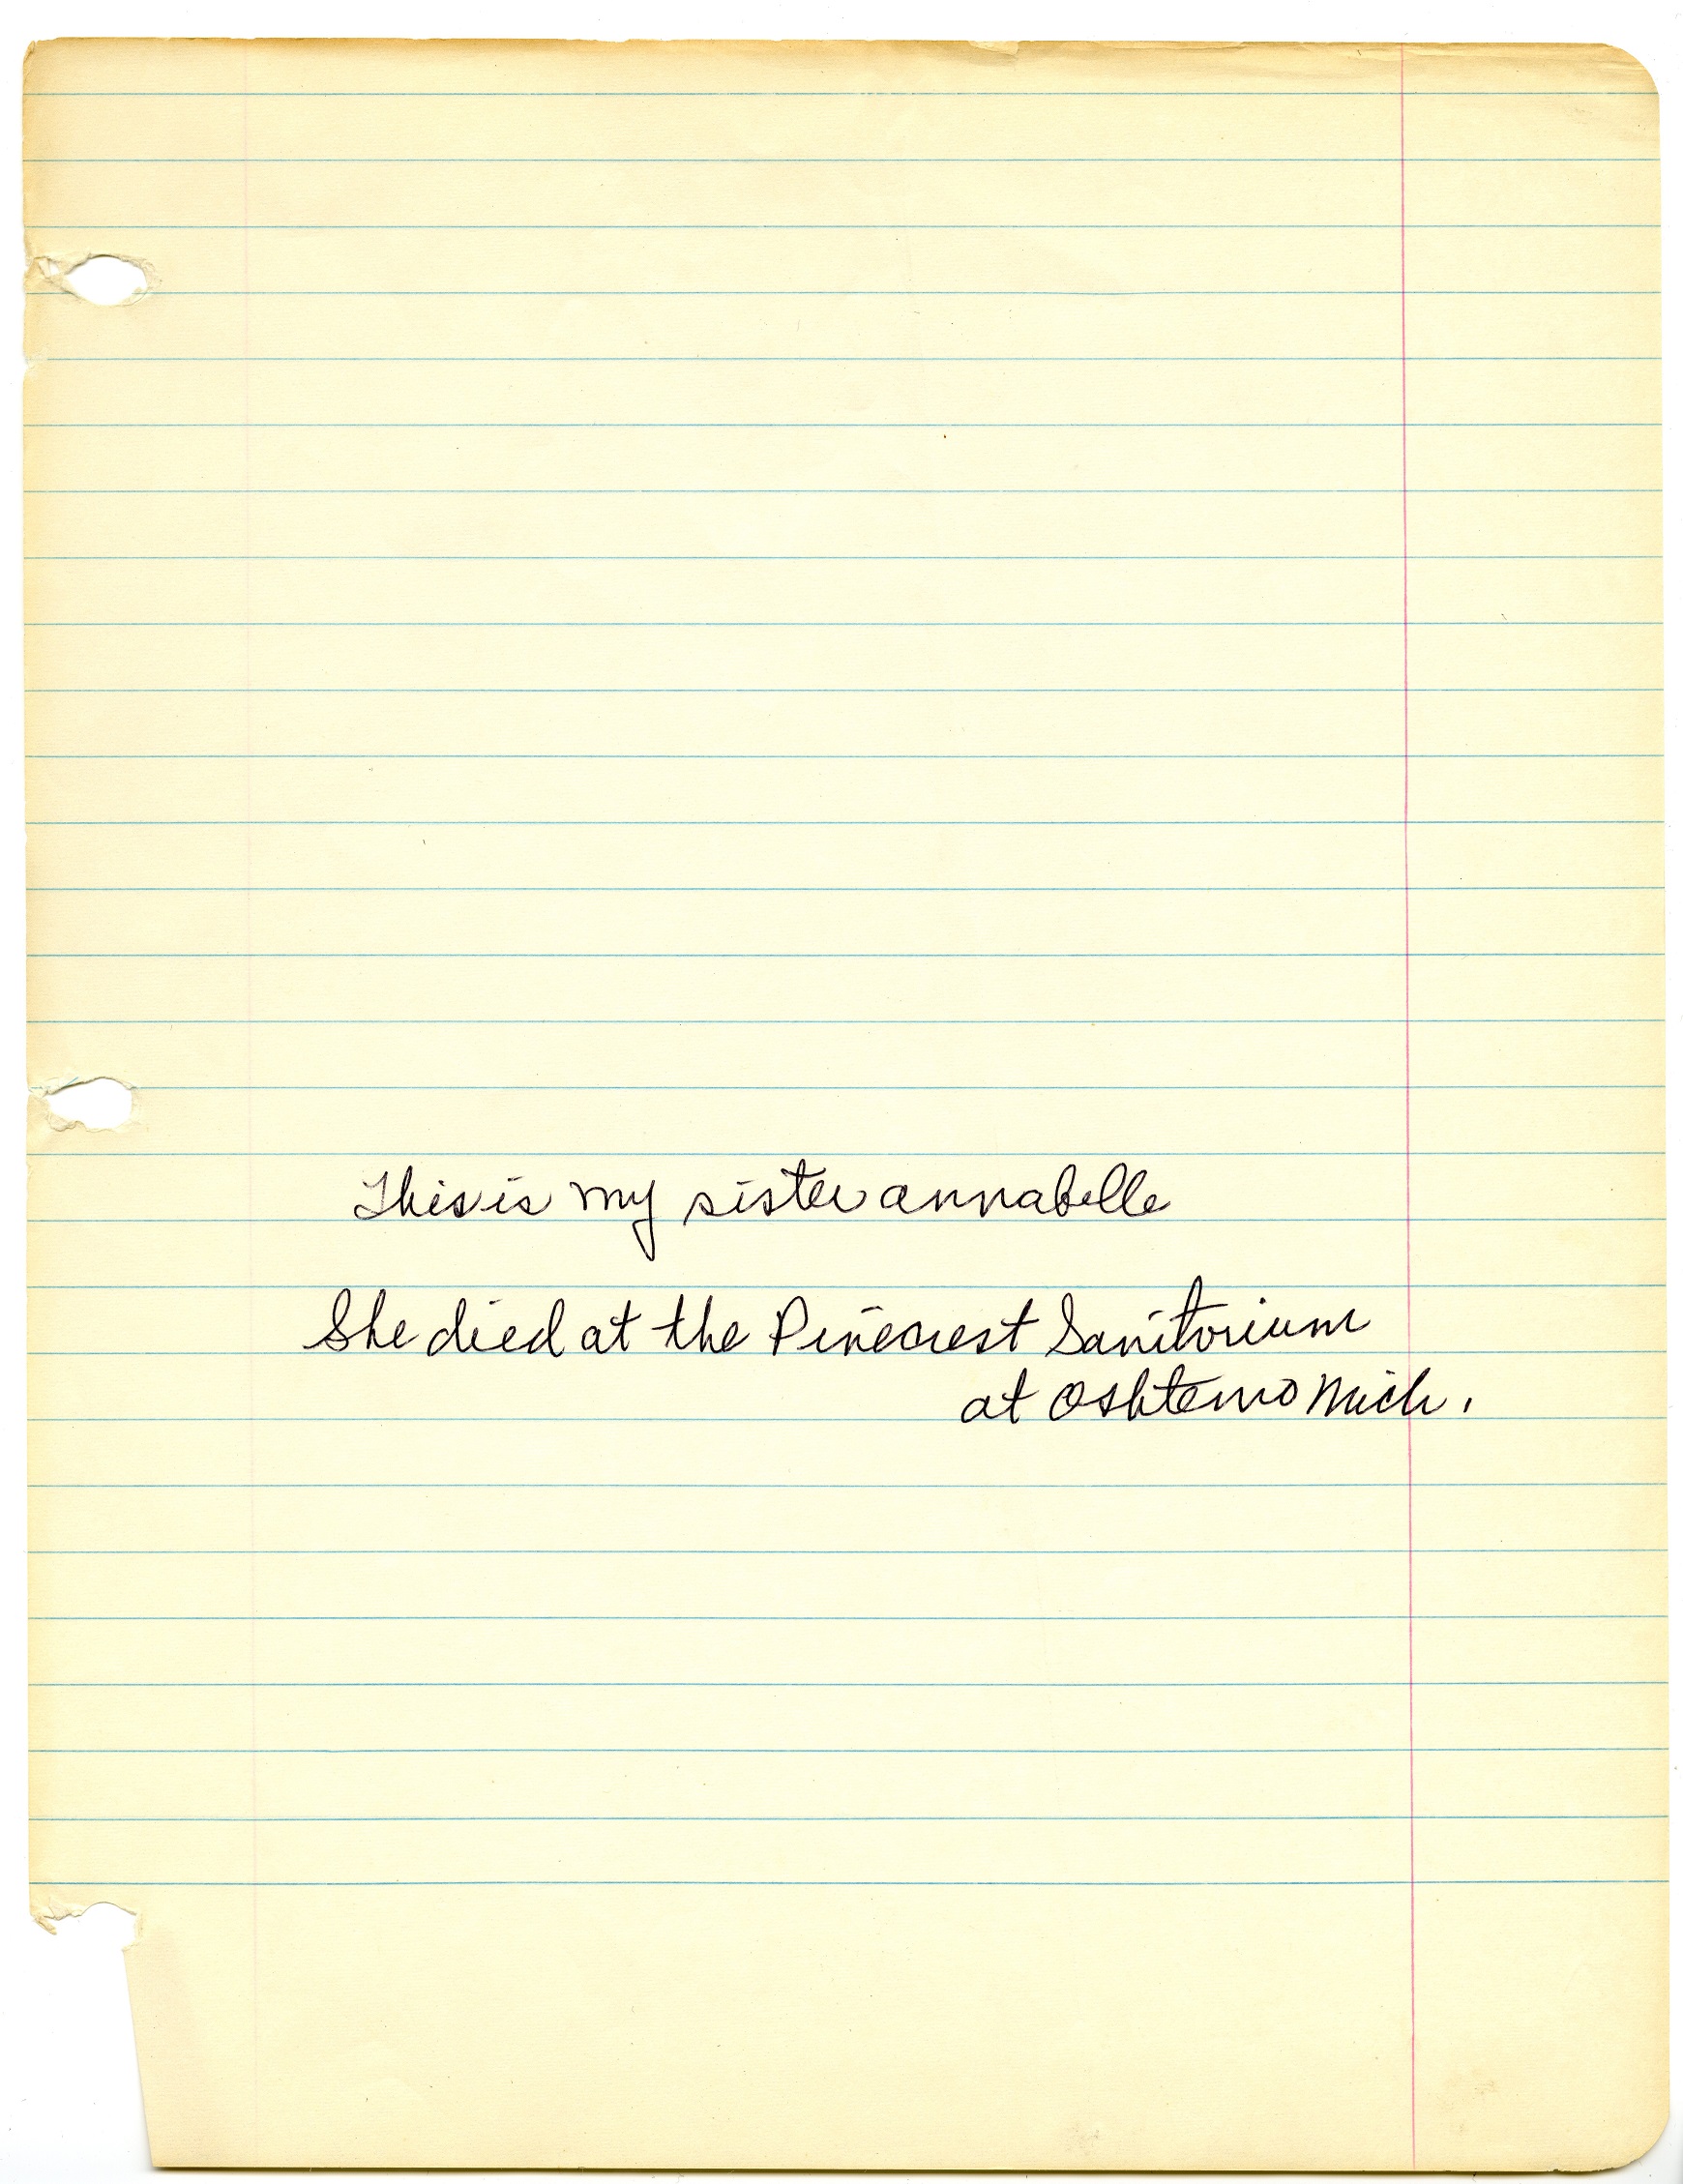 This is my sister annabelle
She died at the Pinecrest Sanitorium
at Oshtemo Mich.